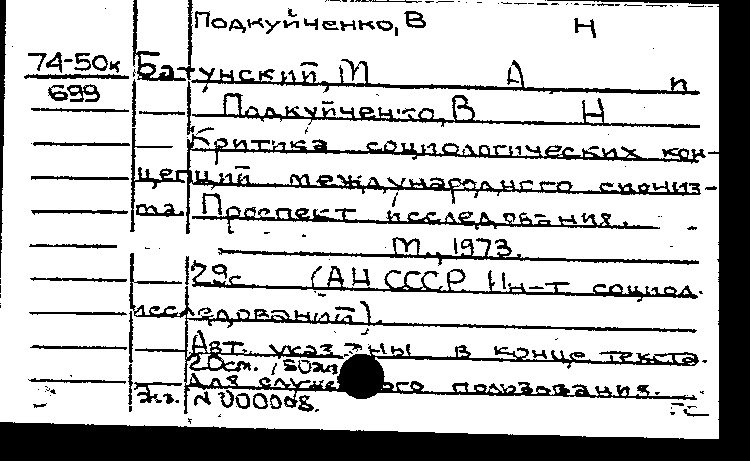 Подкуйченко, В Н
74-50к Батунский, М А п
699
Подкуйченко, В Н
Критика социологических кон-
цепций международного сиониз-
ма. Проспект исследования.
М., 1973.
29с. (АН СССР Ин-т социол.
исследований).
Авт. указаны в конце текста.
20см. 150экз
Для служебного пользования.
Экз. N 000008.